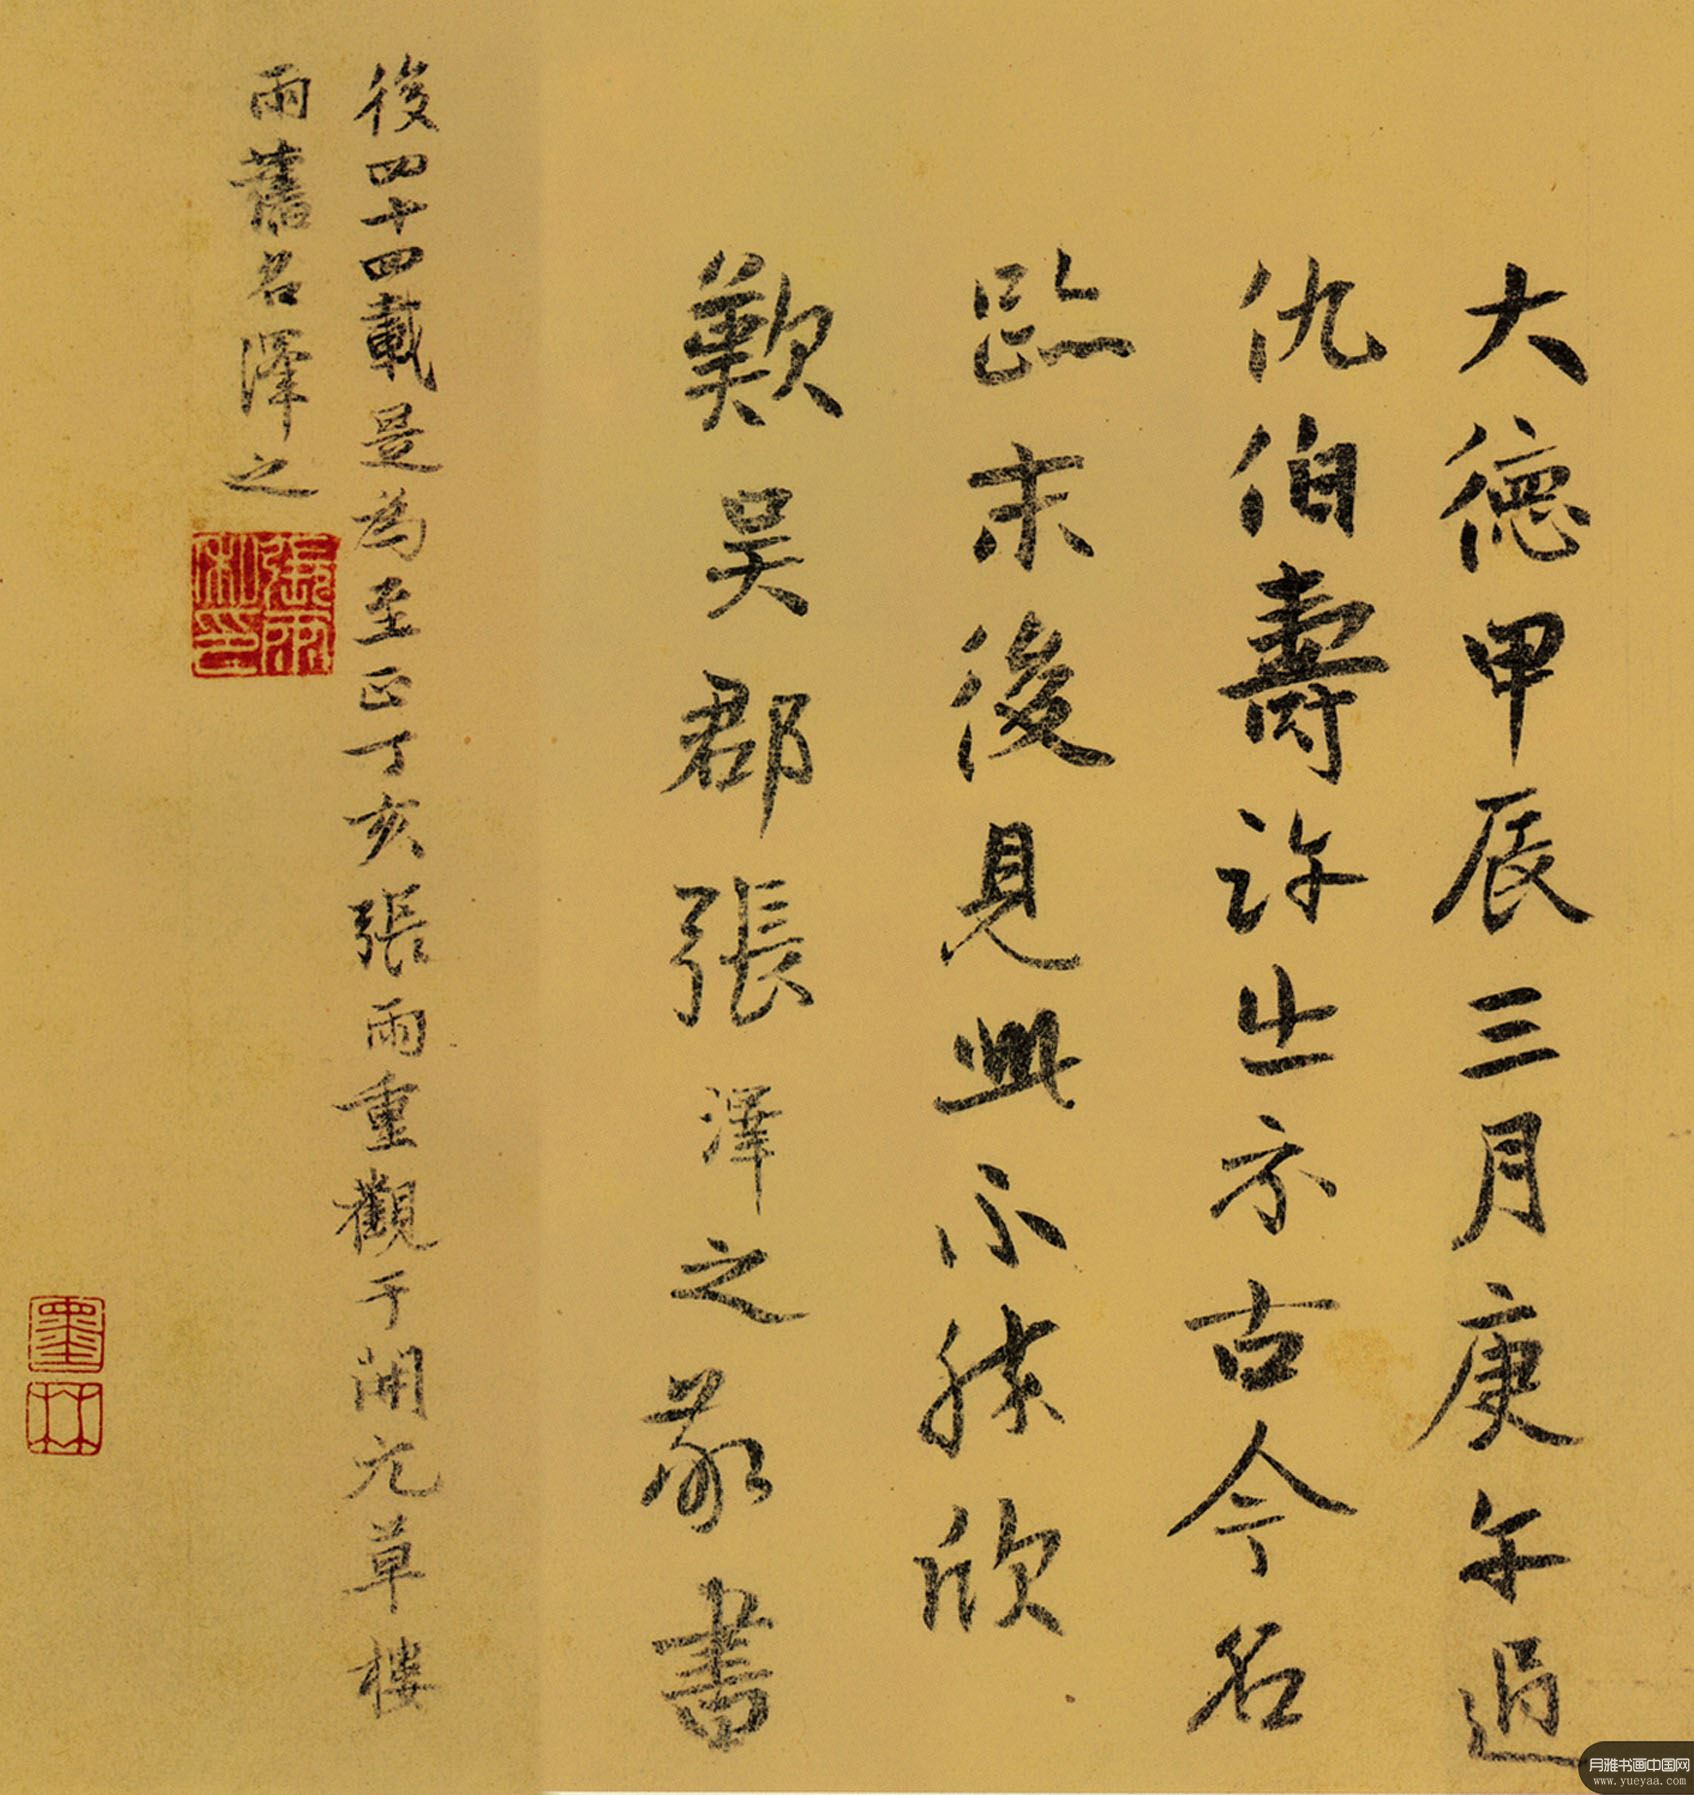 大德甲辰三月庚午過
仇伯壽許出示古今名
跡末後見此不勝欣
歎吳郡張澤之敬書
後四十四載是為至正丁亥張雨重觀于開元草樓
雨舊名澤之
張雨私印
墨林
月雅书画中国网
www.yueyaa.com